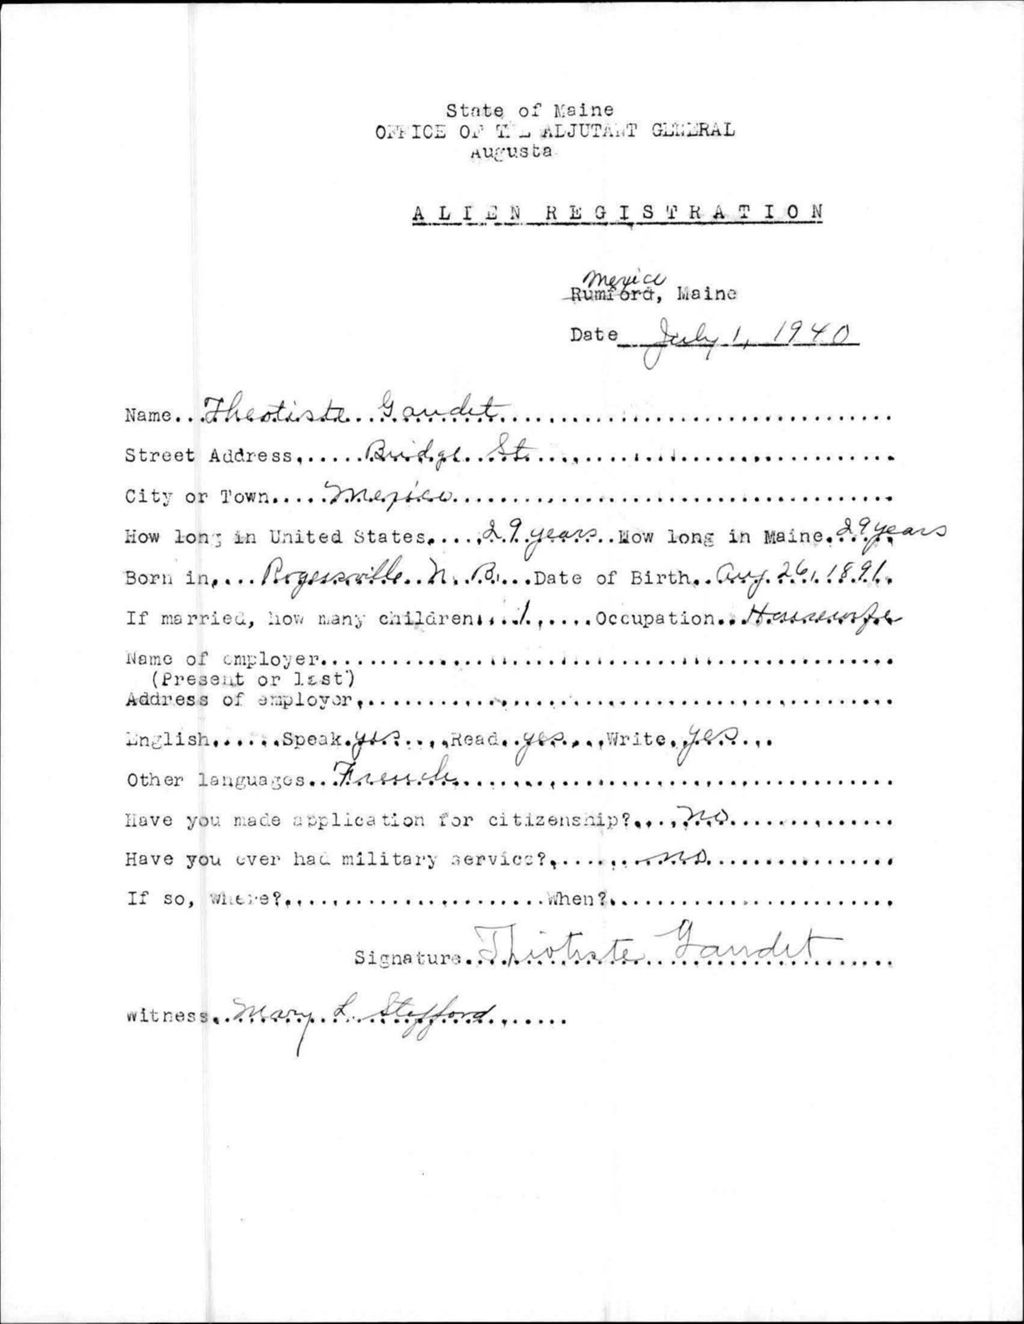 State of Maine
OFFICE OF THE ADJUTANT GENERAL
Augusta
ALIEN REGISTRATION
Mexico
Rumford, Maine
Date July 1, 1940
Name...Theotiste Gaudet
Street Address......Bridge St.
City or Town.....Mexico
How long in United States.....29 years..How long in Maine.29 years
Born in....Rogersville N. B....Date of Birth..Aug. 26, 1891.
If married, how many children....1......Occupation..Housewife
Name of employer
(Present or last)
Address of employer
English......Speak.yes....Read..yes...Write.yes...
Other languages...French
Have you made application for citizenship?....no
Have you ever had military service?.......no
If so, where?......................When?
Signature..Thiotiste Gaudet
Witness..Mary L. Stafford